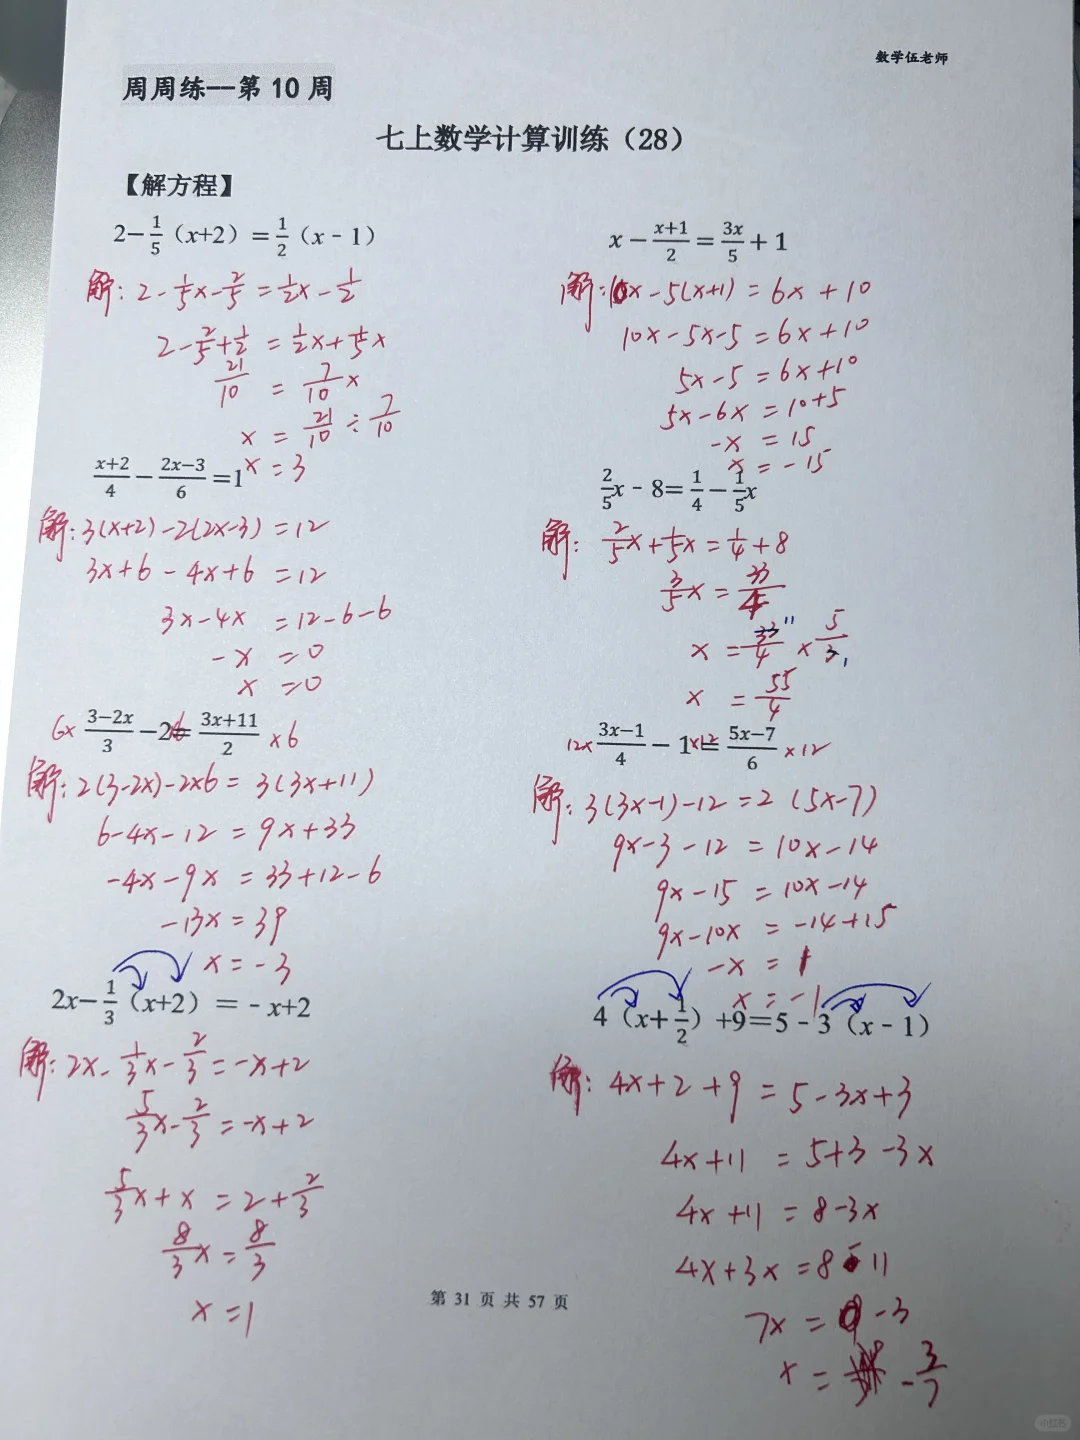 数学伍老师
周周练--第 10 周
七上数学计算训练（28）
【解方程】
2−1/5（x+2）=1/2（x﹣1）
解: 2-1/5x-2/5=1/2x-1/2
2-2/5+1/2=1/2x+1/5x
21/10=7/10x
x=21/10÷7/10
x=3
x−(x+1)/2=3x/5+1
解:10x-5(x+1)=6x+10
10x-5x-5=6x+10
5x-5=6x+10
5x-6x=10+5
-x=15
x=-15
(x+2)/4−(2x−3)/6=1
解:3(x+2)-2(2x-3)=12
3x+6-4x+6=12
3x-4x=12-6-6
-x=0
x=0
2/5x﹣8=1/4−1/5x
解: 2/5x+1/5x=1/4+8
3/5x=33/4
x=33/4×5/3
11
1
x=55/4
6×(3−2x)/3−2×6=(3x+11)/2×6
解:2(3-2x)-2×6=3(3x+11)
6-4x-12=9x+33
-4x-9x=33+12-6
-13x=39
x=-3
12×(3x−1)/4−1×12=(5x−7)/6×12
解:3(3x-1)-12=2(5x-7)
9x-3-12=10x-14
9x-15=10x-14
9x-10x=-14+15
-x=1
x=-1
2x−1/3（x+2）=﹣x+2
解:2x-1/3x-2/3=-x+2
5/3x-2/3=-x+2
5/3x+x=2+2/3
8/3x=8/3
x=1
4（x+1/2）+9=5﹣3（x﹣1）
解: 4x+2+9=5-3x+3
4x+11=5+3-3x
4x+11=8-3x
4x+3x=8-11
7x=-3
x=-3/7
第 31 页 共 57 页
小红书